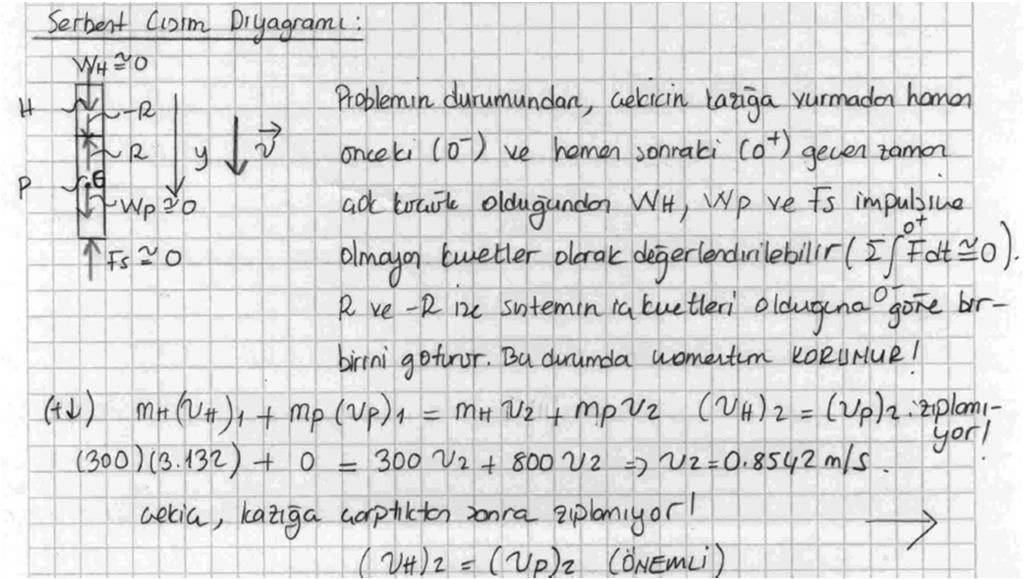 Serbest Cisim Diyagramı:
WH≅0
H
-R
R
y
v⃗
P
G
Wp≅0
Fs≅0
Problemin durumundan, çekicin kazığa vurmadan hemen
önceki (0⁻) ve hemen sonraki (0⁺) geçen zaman
çok küçük olduğundan WH, Wp ve Fs impulsive
olmayan kuvvetler olarak değerlendirilebilir (Σ∫₀₋⁰⁺ F̄dt≅0).
R ve -R ise sistemin iç kuvvetleri olduğuna göre bir-
birini götürür. Bu durumda momentum KORUNUR!
(+↓) mH(vH)1 + mp(vp)1 = mHv2 + mpv2 (vH)2 = (vp)2 : zıplamı-
yor!
(300)(3.132) + 0 = 300 v2 + 800 v2 ⇒ v2=0.8542 m/s.
çekiç, kazığa çarptıktan sonra zıplamıyor!
(vH)2 = (vp)2 (ÖNEMLİ)